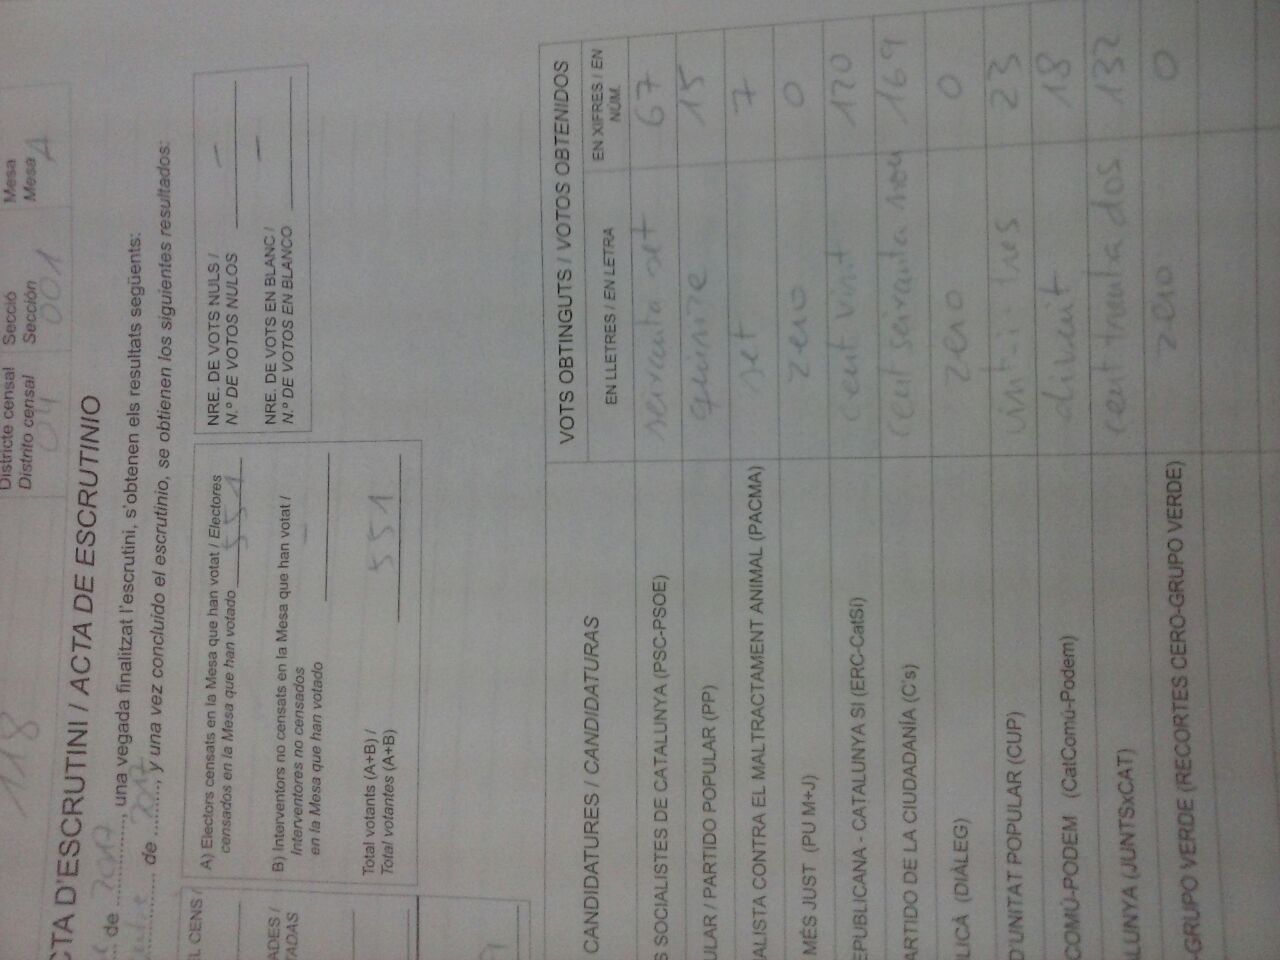 Districte censal
Distrito censal 04
Secció
Sección 001
Mesa
Mesa A
118
CTA D'ESCRUTINI / ACTA DE ESCRUTINIO
de 2017, una vegada finalitzat l'escrutini, s'obtenen els resultats següents:
de 2017, y una vez concluido el escrutinio, se obtienen los siguientes resultados:
EL CENS /
ADES /
TADAS
A) Electors censats en la Mesa que han votat / Electores
censados en la Mesa que han votado 551
B) Interventors no censats en la Mesa que han votat /
Interventores no censados
en la Mesa que han votado –
Total votants (A+B) /
Total votantes (A+B) 551
NRE. DE VOTS NULS /
N.º DE VOTOS NULOS –
NRE. DE VOTS EN BLANC /
N.º DE VOTOS EN BLANCO –
CANDIDATURES / CANDIDATURAS
VOTS OBTINGUTS / VOTOS OBTENIDOS
EN LLETRES / EN LETRA
EN XIFRES / EN
NÚM.
S SOCIALISTES DE CATALUNYA (PSC-PSOE) seixanta set 67
ULAR / PARTIDO POPULAR (PP) quinze 15
ALISTA CONTRA EL MALTRACTAMENT ANIMAL (PACMA) set 7
MÉS JUST (PU M+J) zero 0
EPUBLICANA - CATALUNYA SI (ERC-CatSí) cent vint 120
ARTIDO DE LA CIUDADANÍA (C's) cent seixanta nou 169
LICÀ (DIÀLEG) zero 0
D'UNITAT POPULAR (CUP) vint-i-tres 23
COMÚ-PODEM (CatComú-Podem) divuit 18
LUNYA (JUNTSxCAT) cent trenta dos 132
-GRUPO VERDE (RECORTES CERO-GRUPO VERDE) zero 0